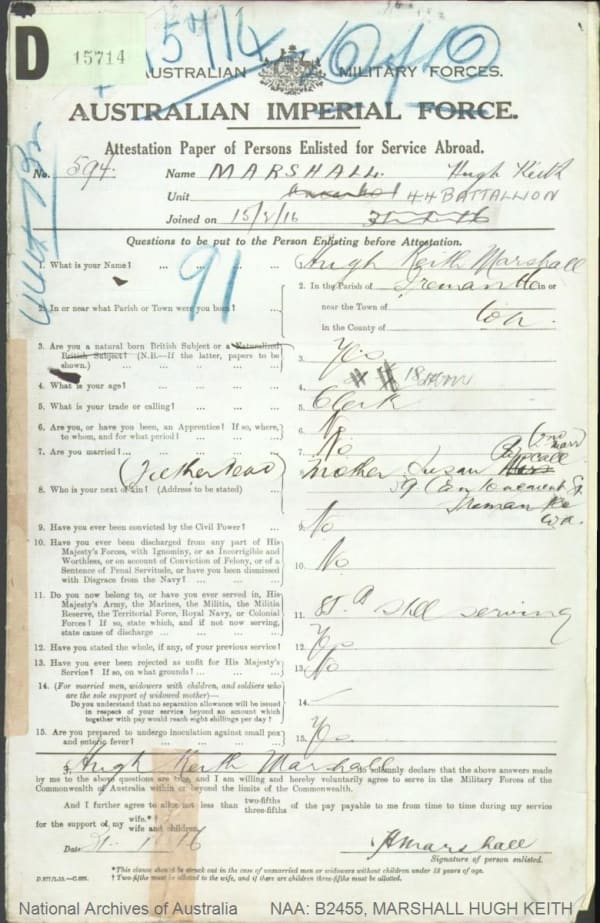 D
15714
15714
AUSTRALIAN MILITARY FORCES.
AUSTRALIAN IMPERIAL FORCE.
Attestation Paper of Persons Enlisted for Service Abroad.
No. 594. Name MARSHALL. Hugh Keith
Unit 44 BATTALLION
Joined on 15/2/16
Questions to be put to the Person Enlisting before Attestation.
91
1. What is your Name? ... ... ... ... Hugh Keith Marshall
2. In or near what Parish or Town were you born? ...
2. In the Parish of Fremantle in or
near the Town of
in the County of W.A.
3. Are you a natural born British Subject or a Naturalized
British Subject? (N.B.—If the latter, papers to be
shown.) ... ... ... ... ... 3. Yes
4. What is your age? ... ... ... ... 4. 18
5. What is your trade or calling? ... ... ... 5. Clerk
6. Are you, or have you been, an Apprentice? If so, where,
to whom, and for what period? ... ... ... 6. No
7. Are you married? ... ... ... ... 7. No
(Father dead)
8. Who is your next of kin? (Address to be stated) ...
8. Mother Susan
59
Fremantle
W.A.
9. Have you ever been convicted by the Civil Power? ... 9. No
10. Have you ever been discharged from any part of His
Majesty's Forces, with Ignominy, or as Incorrigible and
Worthless, or on account of Conviction of Felony, or of a
Sentence of Penal Servitude, or have you been dismissed
with Disgrace from the Navy? ... ... ... 10. No
11. Do you now belong to, or have you ever served in, His
Majesty's Army, the Marines, the Militia, the Militia
Reserve, the Territorial Force, Royal Navy, or Colonial
Forces? If so, state which, and if not now serving,
state cause of discharge ... ... ... 11. still serving
12. Have you stated the whole, if any, of your previous service? 12. Yes
13. Have you ever been rejected as unfit for His Majesty's
Service? If so, on what grounds? ... ... ... 13. No
14. (For married men, widowers with children, and soldiers who
are the sole support of widowed mother)—
Do you understand that no separation allowance will be issued
in respect of your service beyond an amount which
together with pay would reach eight shillings per day? 14. —
15. Are you prepared to undergo inoculation against small pox
and enteric fever? ... ... ... ... 15. Yes
I, Hugh Keith Marshall do solemnly declare that the above answers made
by me to the above questions are true, and I am willing and hereby voluntarily agree to serve in the Military Forces of the
Commonwealth of Australia within or beyond the limits of the Commonwealth.
And I further agree to allot not less than two-fifths three-fifths of the pay payable to me from time to time during my service
for the support of my wife.*† wife and children.
Date 31. 1. 16 H Marshall
Signature of person enlisted.
*This clause should be struck out in the case of unmarried men or widowers without children under 18 years of age.
† Two-fifths must be allotted to the wife, and if there are children three-fifths must be allotted.
National Archives of Australia NAA: B2455, MARSHALL HUGH KEITH